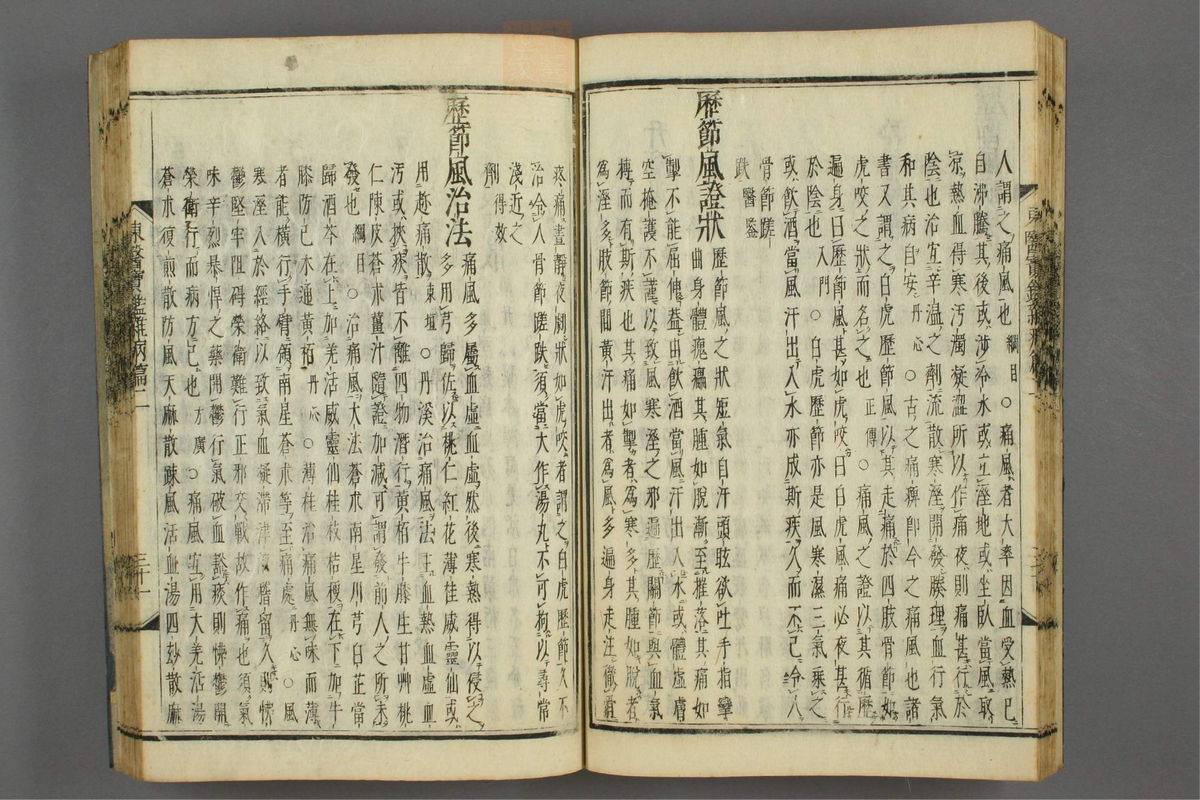 人謂之痛風也 綱目 ○痛風者大率因血受熱已
自沸騰其後或涉冷水或立濕地或坐臥當風取
凉熱血得寒汚濁凝澁所以作痛夜則痛甚行於
陰也治宜辛溫之劑流散寒濕開發腠理血行氣
和其病自安 丹心 ○古之痛痺即今之痛風也諸
書又謂之白虎歷節風以其走痛於四肢骨節如
虎咬之狀而名之也 正傳 ○痛風之證以其循歷
遍身曰歷節風甚如虎咬曰白虎風痛必夜甚行
於陰也 入門 ○白虎歷節亦是風寒濕三氣乘之
或飲酒當風汗出入水亦成斯疾久而不已令人
骨節蹉
跌 醫鑑
歷節風證狀
歷節風之狀短氣自汗頭眩欲吐手指攣
曲身體瘣㿔其腫如脫漸至摧落其痛如
掣不能屈伸盖由飲酒當風汗出入水或體虛膚
空掩護不謹以致風寒濕之邪遍歷關節與血氣
搏而有斯疾也其痛如掣者爲寒多其腫如脫者
爲濕多肢節間黃汗出者爲風多遍身走注徹骨
疼痛晝靜夜劇狀如虎咬者謂之白虎歷節久不
治令人骨節蹉跌須當大作湯丸不可拘以尋常
淺近之
劑 得效
歷節風治法
痛風多屬血虛血虛然後寒熱得以侵之
多用芎歸佐以桃仁紅花薄桂威靈仙或
用趁痛散 東垣 ○丹溪治痛風法主血熱血虛血
汚或挾痰皆不離四物潛行黃栢牛膝生甘艸桃
仁陳皮蒼朮薑汁隨證加減可謂發前人之所未
發也 綱目 ○治痛風大法蒼朮南星川芎白芷當
歸酒芩在上加羌活威靈仙桂枝桔梗在下加牛
膝防已木通黃栢 丹心 ○薄桂治痛風無味而薄
者能橫行手臂領南星蒼朮等至痛處 丹心 ○風
寒濕入於經絡以致氣血凝滯津液稽留久則怫
鬱堅牢阻碍榮衛難行正邪交戰故作痛也須氣
味辛烈暴悍之藥開鬱行氣破血豁痰則怫鬱開
榮衛行而病方已也 方廣 ○痛風宜用大羌活湯
蒼朮復煎散防風天麻散踈風活血湯四妙散麻
東醫寶鑑雜病篇二
三十一